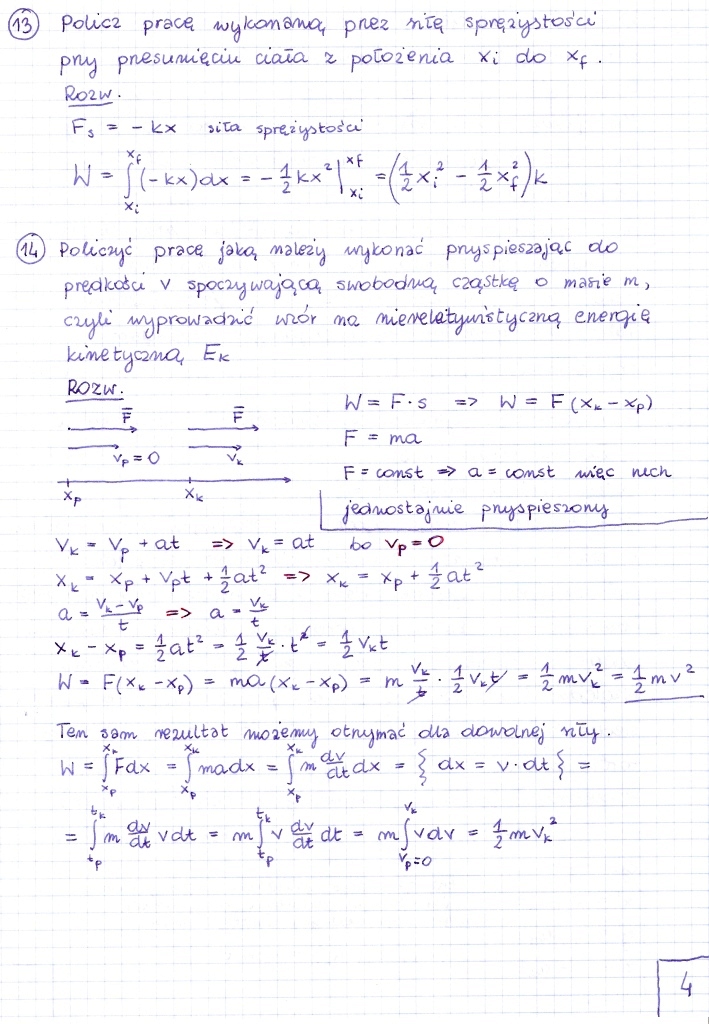 13 Policz pracę wykonaną przez siłę sprężystości
przy przesunięciu ciała z położenia xi do xf.
Rozw.
Fs = - kx siła sprężystości
W = ∫_{xi}^{xf} (-kx)dx = - 1/2 kx² |_{xi}^{xf} = (1/2 xi² - 1/2 xf²)k
14 Policzyć pracę jaką należy wykonać przyspieszając do
prędkości v spoczywającą swobodną cząstkę o masie m,
czyli wyprowadzić wzór na nierelatywistyczną energię
kinetyczną Ek
Rozw.
F̄ F̄
vp = 0 vk
xp xk
W = F·s => W = F(xk - xp)
F = ma
F = const => a = const więc ruch
jednostajnie przyspieszony
vk = vp + at => vk = at bo vp = 0
xk = xp + vpt + 1/2 at² => xk = xp + 1/2 at²
a = (vk - vp)/t => a = vk/t
xk - xp = 1/2 at² = 1/2 vk/t · t² = 1/2 vkt
W = F(xk - xp) = ma(xk - xp) = m vk/t · 1/2 vkt = 1/2 mvk² = 1/2 mv²
Ten sam rezultat możemy otrzymać dla dowolnej siły.
W = ∫_{xp}^{xk} Fdx = ∫_{xp}^{xk} madx = ∫_{xp}^{xk} m dv/dt dx = { dx = v·dt } =
= ∫_{tp}^{tk} m dv/dt vdt = m ∫_{tp}^{tk} v dv/dt dt = m ∫_{vp=0}^{vk} vdv = 1/2 mvk²
4